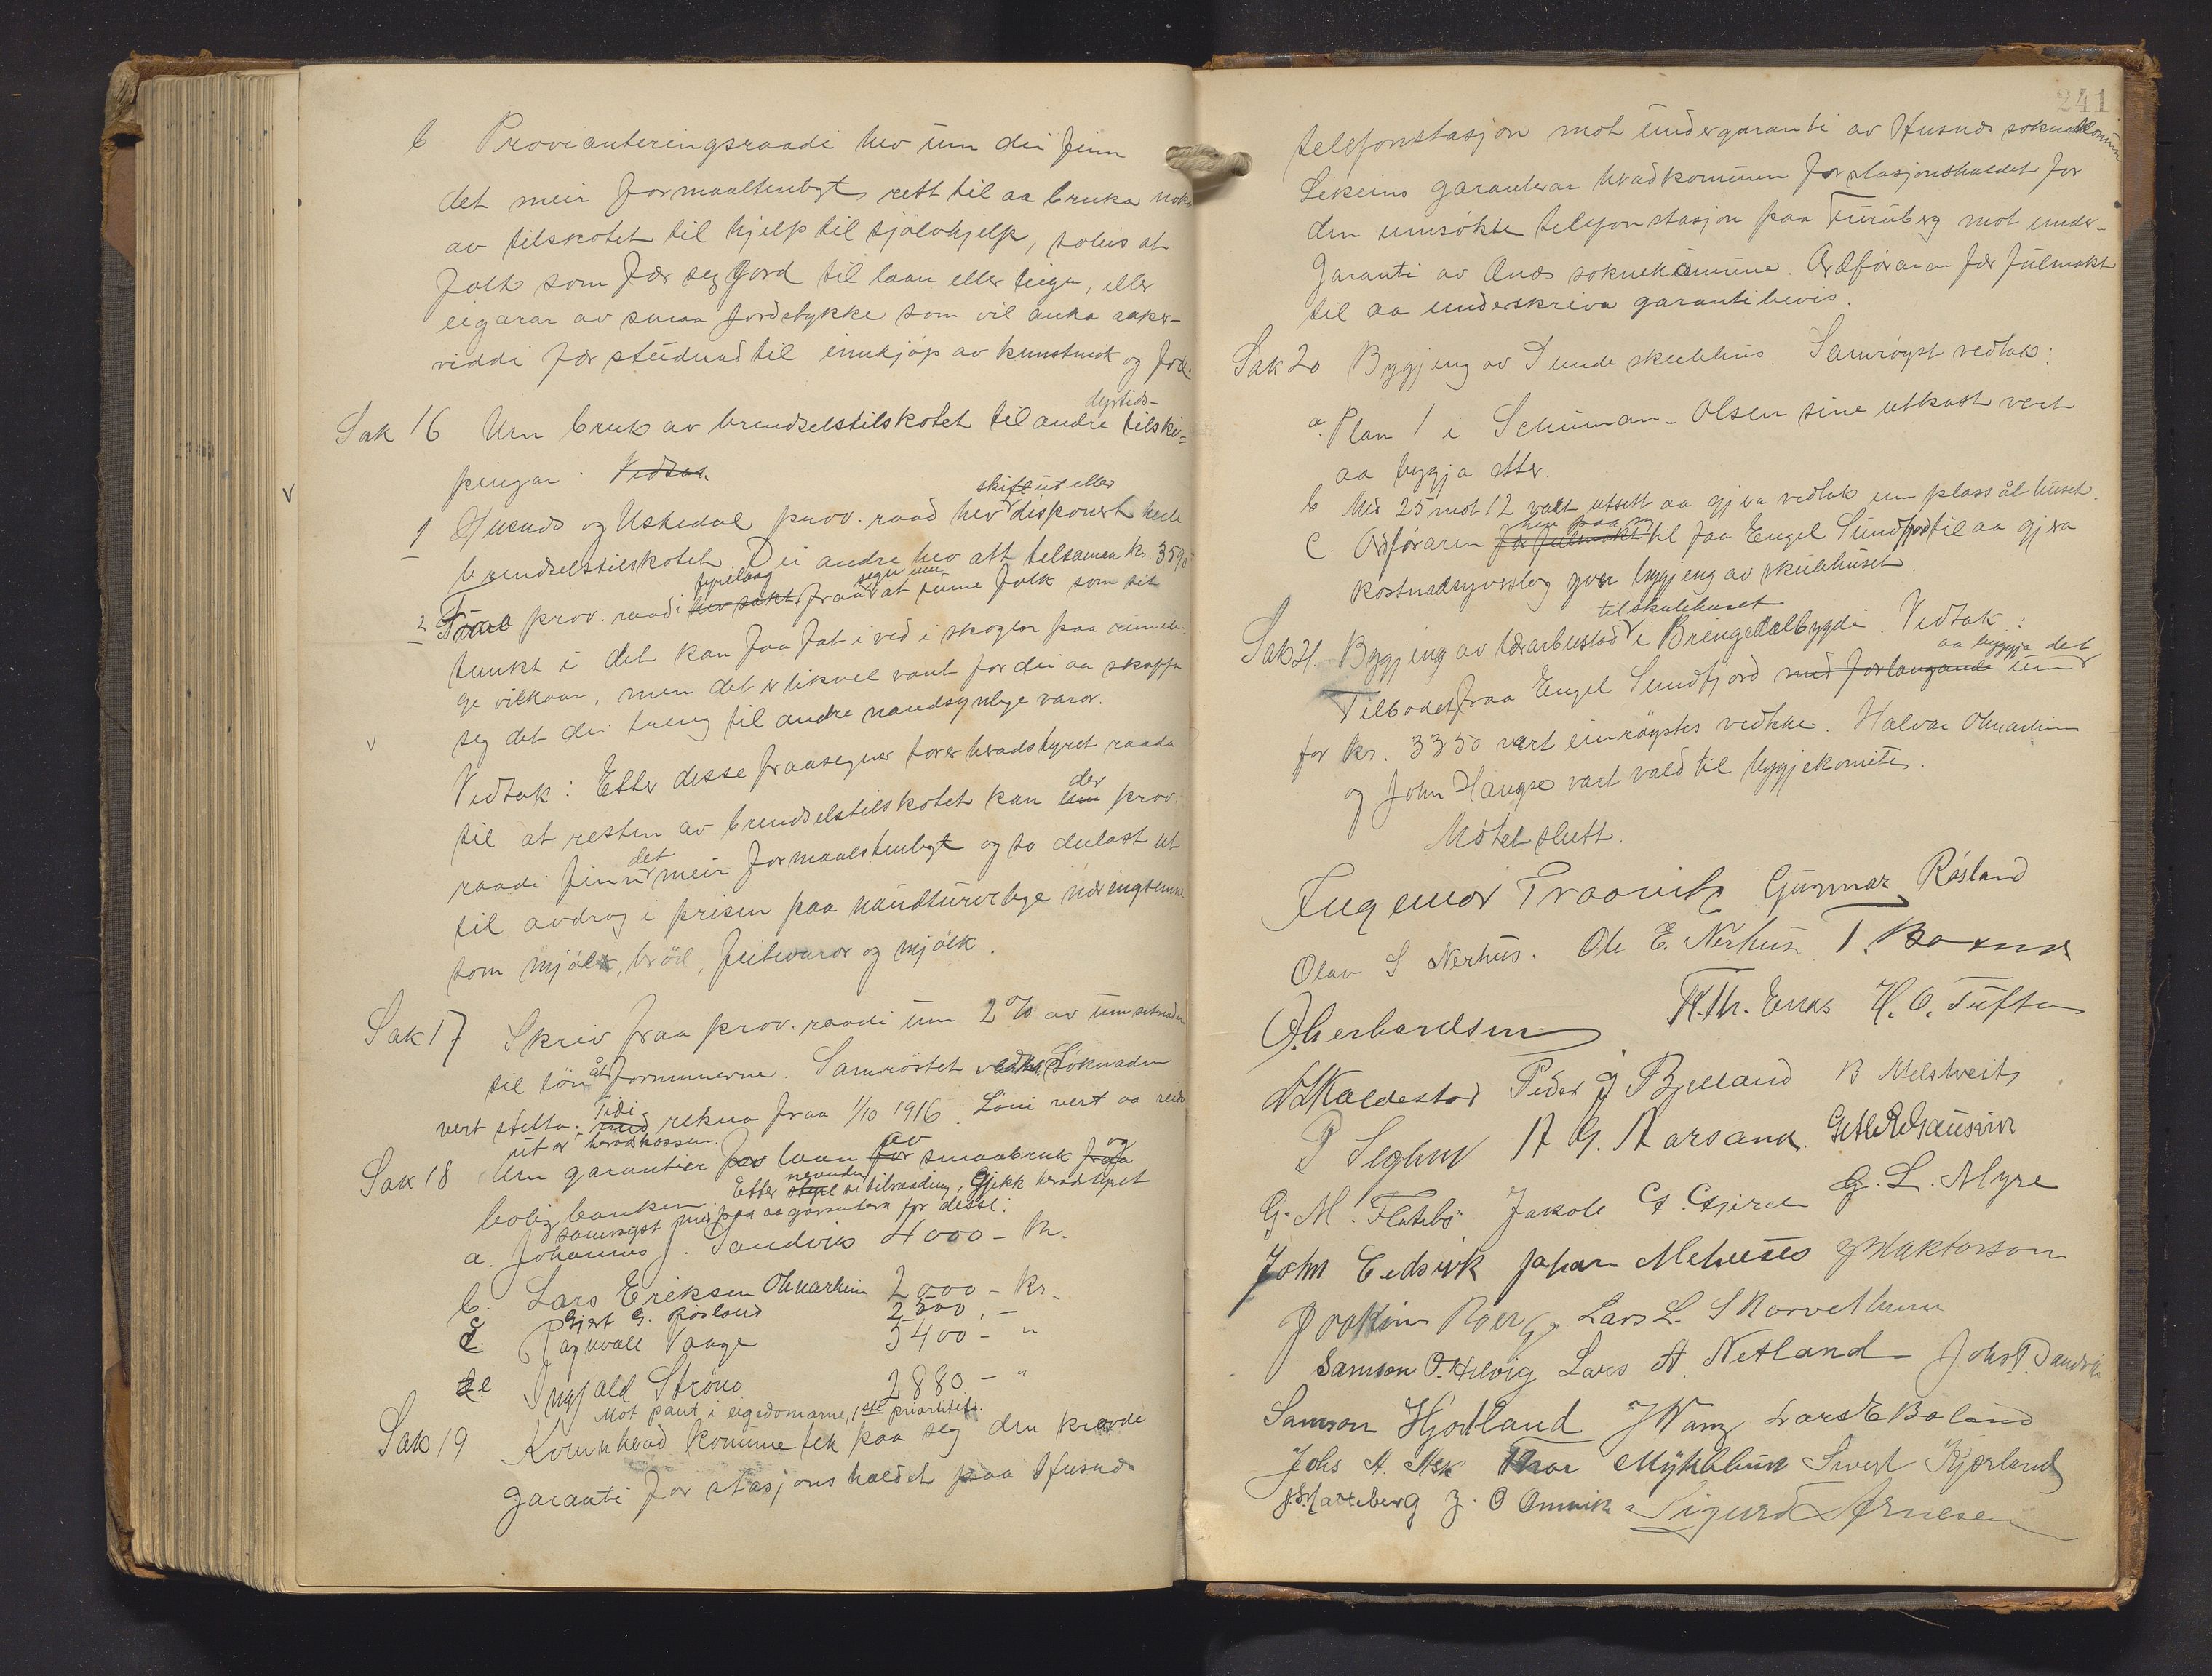 b Provianteringsraadi hev um dei finn
det meir formaaltenlegt rett til aa bruka noko
av tilskotet til hjelp til sjölvhjelp, soleis at
folk som fær seg jord til laan eller leiga, eller
eigarar av smaa jordstykke som vil auka aaker-
viddi fær studnad til innkjöp av kunstmök og frö.
dyrtids-
Sak 16 Um bruk av brendselstilskotet til andre tilski-
pingar. Vedtak
skift ut eller
1 Husnes og Uskedal prov. raad hev disponert heile
brendselstilskotet. Dei andre hev att tilsaman kr. 3595
fyrelaag segn um
2 prov. raadi hev sakt fraa at tunne folk som sit
tenkt i det kan faa fat i ved i skogen paa rimele-
ge vilkaar, men det er likevel vant for dei aa skaffa
seg det dei treng til andre naudsynlege varor.
Vedtak: Etter desse fraasegner torer heradstyret raada
til at resten av brendselstilskotet kan der um prov.
raadi finn det meir formaalstenlegt og so deilast ut
til avdrag i prisen paa naudturvelege næringsemne
som mjöl, bröd, feitvaror og mjölk.
Sak 17 Skriv fraa prov. raadi um 2 % av umsetnaden
til lön åt formennerne. Samröstet vedtak Söknaden
vert stetta. Tidi med rekna fraa 1/10 1916. Löni vert aa reida
ut or heradskassen.
Sak 18 Um garantier for laan av for smaabruk og fraa
boligbanken. Etter nemnder si tilraading, gjekk heradstyret
samrøyst med paa aa garantera for desse:
a. Johannes J. Sandvik 4000 - kr.
b. Lars Eriksen Ohnarheim 2000 - kr.
c. Gjert G. Røsland 2500,-
d. Ragnvald Vaage 3400 - "
e Ingjald Ströno 2880 - "
Mot pant i eigedomarne, 1ste prioritet.
Sak 19 Kvinnherad kommune tek paa seg den kravde
garanti for stasjonshaldet paa Husnes
241
telefonstasjon mot undergaranti av Husnes soknekomune
Likeins garanterar heradkommunen for stasjonshaldet for
den umsökte telefonstasjon paa Furuberg mot under-
garanti av Ænes soknekommune. Ordföraren fær fulmakt
til aa underskriva garantibevis.
Sak 20 Bygjing av Sunde skulehus. Samröyst vedtak:
a. Plan 1 i Schuman-Olsen sine utkast vert
aa bygja etter.
b Med 25 mot 12 vart utsett aa gjeva vedtak um plass åt huset.
c. Ordföraren fær fulmakt til faa Engel Sundfjord til aa gjera
kostnadsyverslag yver bygjing av skulehuset.
til skulehuset
Sak 21. Bygjing av lærarbustad i Bringedalbygdi. Vedtak:
aa byggja det
Tilbodet fraa Engel Sundfjord med forlangande um
for kr. 3350 vart einröystes vedteke. Halvar Ohnarheim
og John Haugse vart vald til bygjekomite.
Mötet slutt.
Ingemar Traavik Gunnar Røsland
Olav S Nerhus. Ole E. Nerhus T. Baxnes
O. Gerhardsen K. Th. Enes H. O. Tufte
N Kaldestad Peder J Bjelland B Melstveit
P Seglem A G. Aarsand
G. M. Flatebø Jakob A. Gjerde G. L. Myre
John Eidsvik Johan Mehus J Haktorson
Joakim Berg Lars L. Skorvethun
Samson O. Helvig Lars A Netland Johs P. Sandvik
Samson Hjortland J Vang Lars E Boland
Johs A. Ask Thor Myklebust Sivert Kjærland
J. S. Matteberg J. O Omvik Sigurd Arnesen